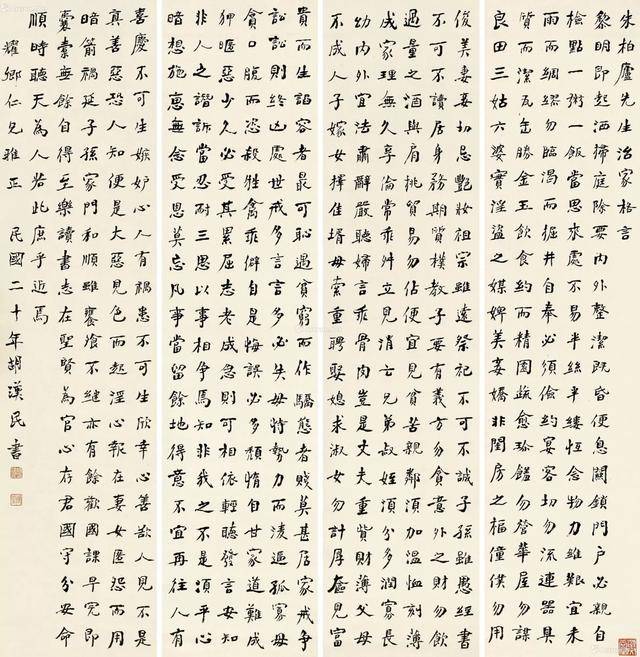 朱柏廬先生治家格言
黎明即起洒掃庭除要内外整潔既昏便息關鎖門戶必親自
檢點一粥一飯當思來處不易半絲半縷恆念物力維艱宜未
雨而綢繆勿臨渴而掘井自奉必須儉約宴客切勿流連器具
質而潔瓦缶勝金玉飲食約而精園蔬愈珍饈勿營華屋勿謀
良田三姑六婆實淫盜之媒婢美妾嬌非閨房之福僮僕勿用
俊美妻妾切忌艷妝祖宗雖遠祭祀不可不誠子孫雖愚經書
不可不讀居身務期質樸教子要有義方勿貪意外之財勿飲
過量之酒與肩挑貿易勿佔便宜見貧苦親鄰須加溫恤刻薄
成家理無久享倫常乖舛立見消亡兄弟叔姪須分多潤寡長
幼内外宜法肅辭嚴聽婦言乖骨肉豈是丈夫重貲財薄父母
不成人子嫁女擇佳壻毋索重聘娶媳求淑女勿計厚奩見富
貴而生諂容者最可恥遇貧窮而作驕態者賤莫甚居家戒爭
訟訟則終凶處世戒多言言多必失毋恃勢力而凌逼孤寡毋
貪口腹而恣殺牲禽乖僻自是悔誤必多頹惰自甘家道難成
狎暱惡少久必受其累屈志老成急則可相依輕聽發言安知
非人之譖訴當忍耐三思以事相爭焉知非我之不是須平心
暗想施惠無念受恩莫忘凡事當留餘地得意不宜再往人有
喜慶不可生嫉妒心人有禍患不可生欣幸心善欲人見不是
真善惡恐人知便是大惡見色而起淫心報在妻女匿怨而用
暗箭禍延子孫家門和順雖饔飱不繼亦有餘歡國課早完即
囊橐無餘自得至樂讀書志在聖賢為官心存君國守分安命
順時聽天為人若此庶乎近焉
耀卿仁兄雅正 民國二十年胡漢民書